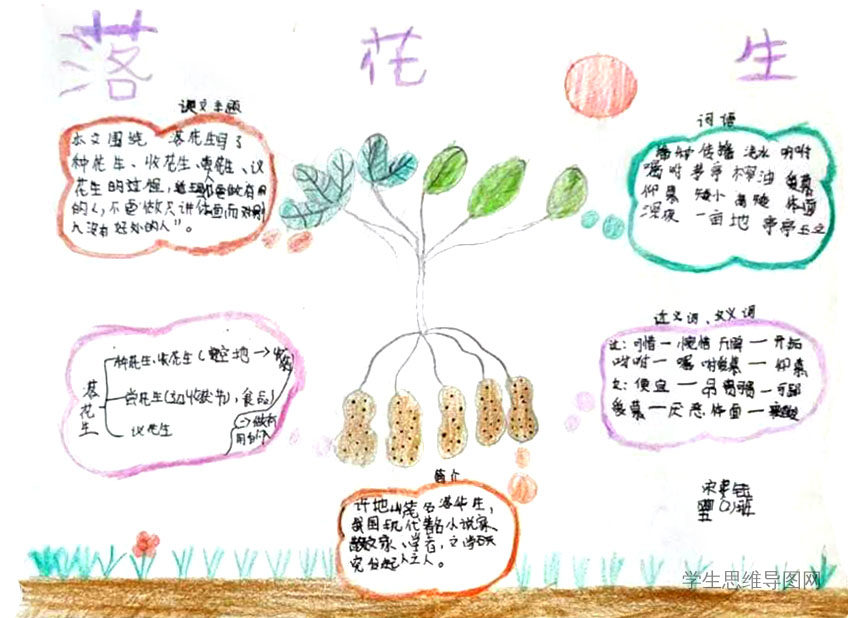 落花生
课文主题
本文围绕 落花生写了
种花生、收花生、尝花生、议
花生的过程,
的人,不要做只讲体面,而对别
人没有好处的人”。
词语
播种 传播 浇水 吩咐
嘱咐 茅亭 榨油 爱慕
仰慕 矮小 石榴 体面
深夜 一亩地 亭亭玉立
落花生
种花生、收花生(空地→收获)
尝花生(初收获节),食品
议花生
→做有
用的人
近义词、反义词
近:可惜—惋惜 开辟—开拓
吩咐—嘱咐 爱慕—仰慕
反:便宜—昂贵
爱慕—厌恶 体面—
简介
许地山笔名落华生,
我国现代著名小说家、
散文家、学者,文学研
究会发起人之一。
学生思维导图网